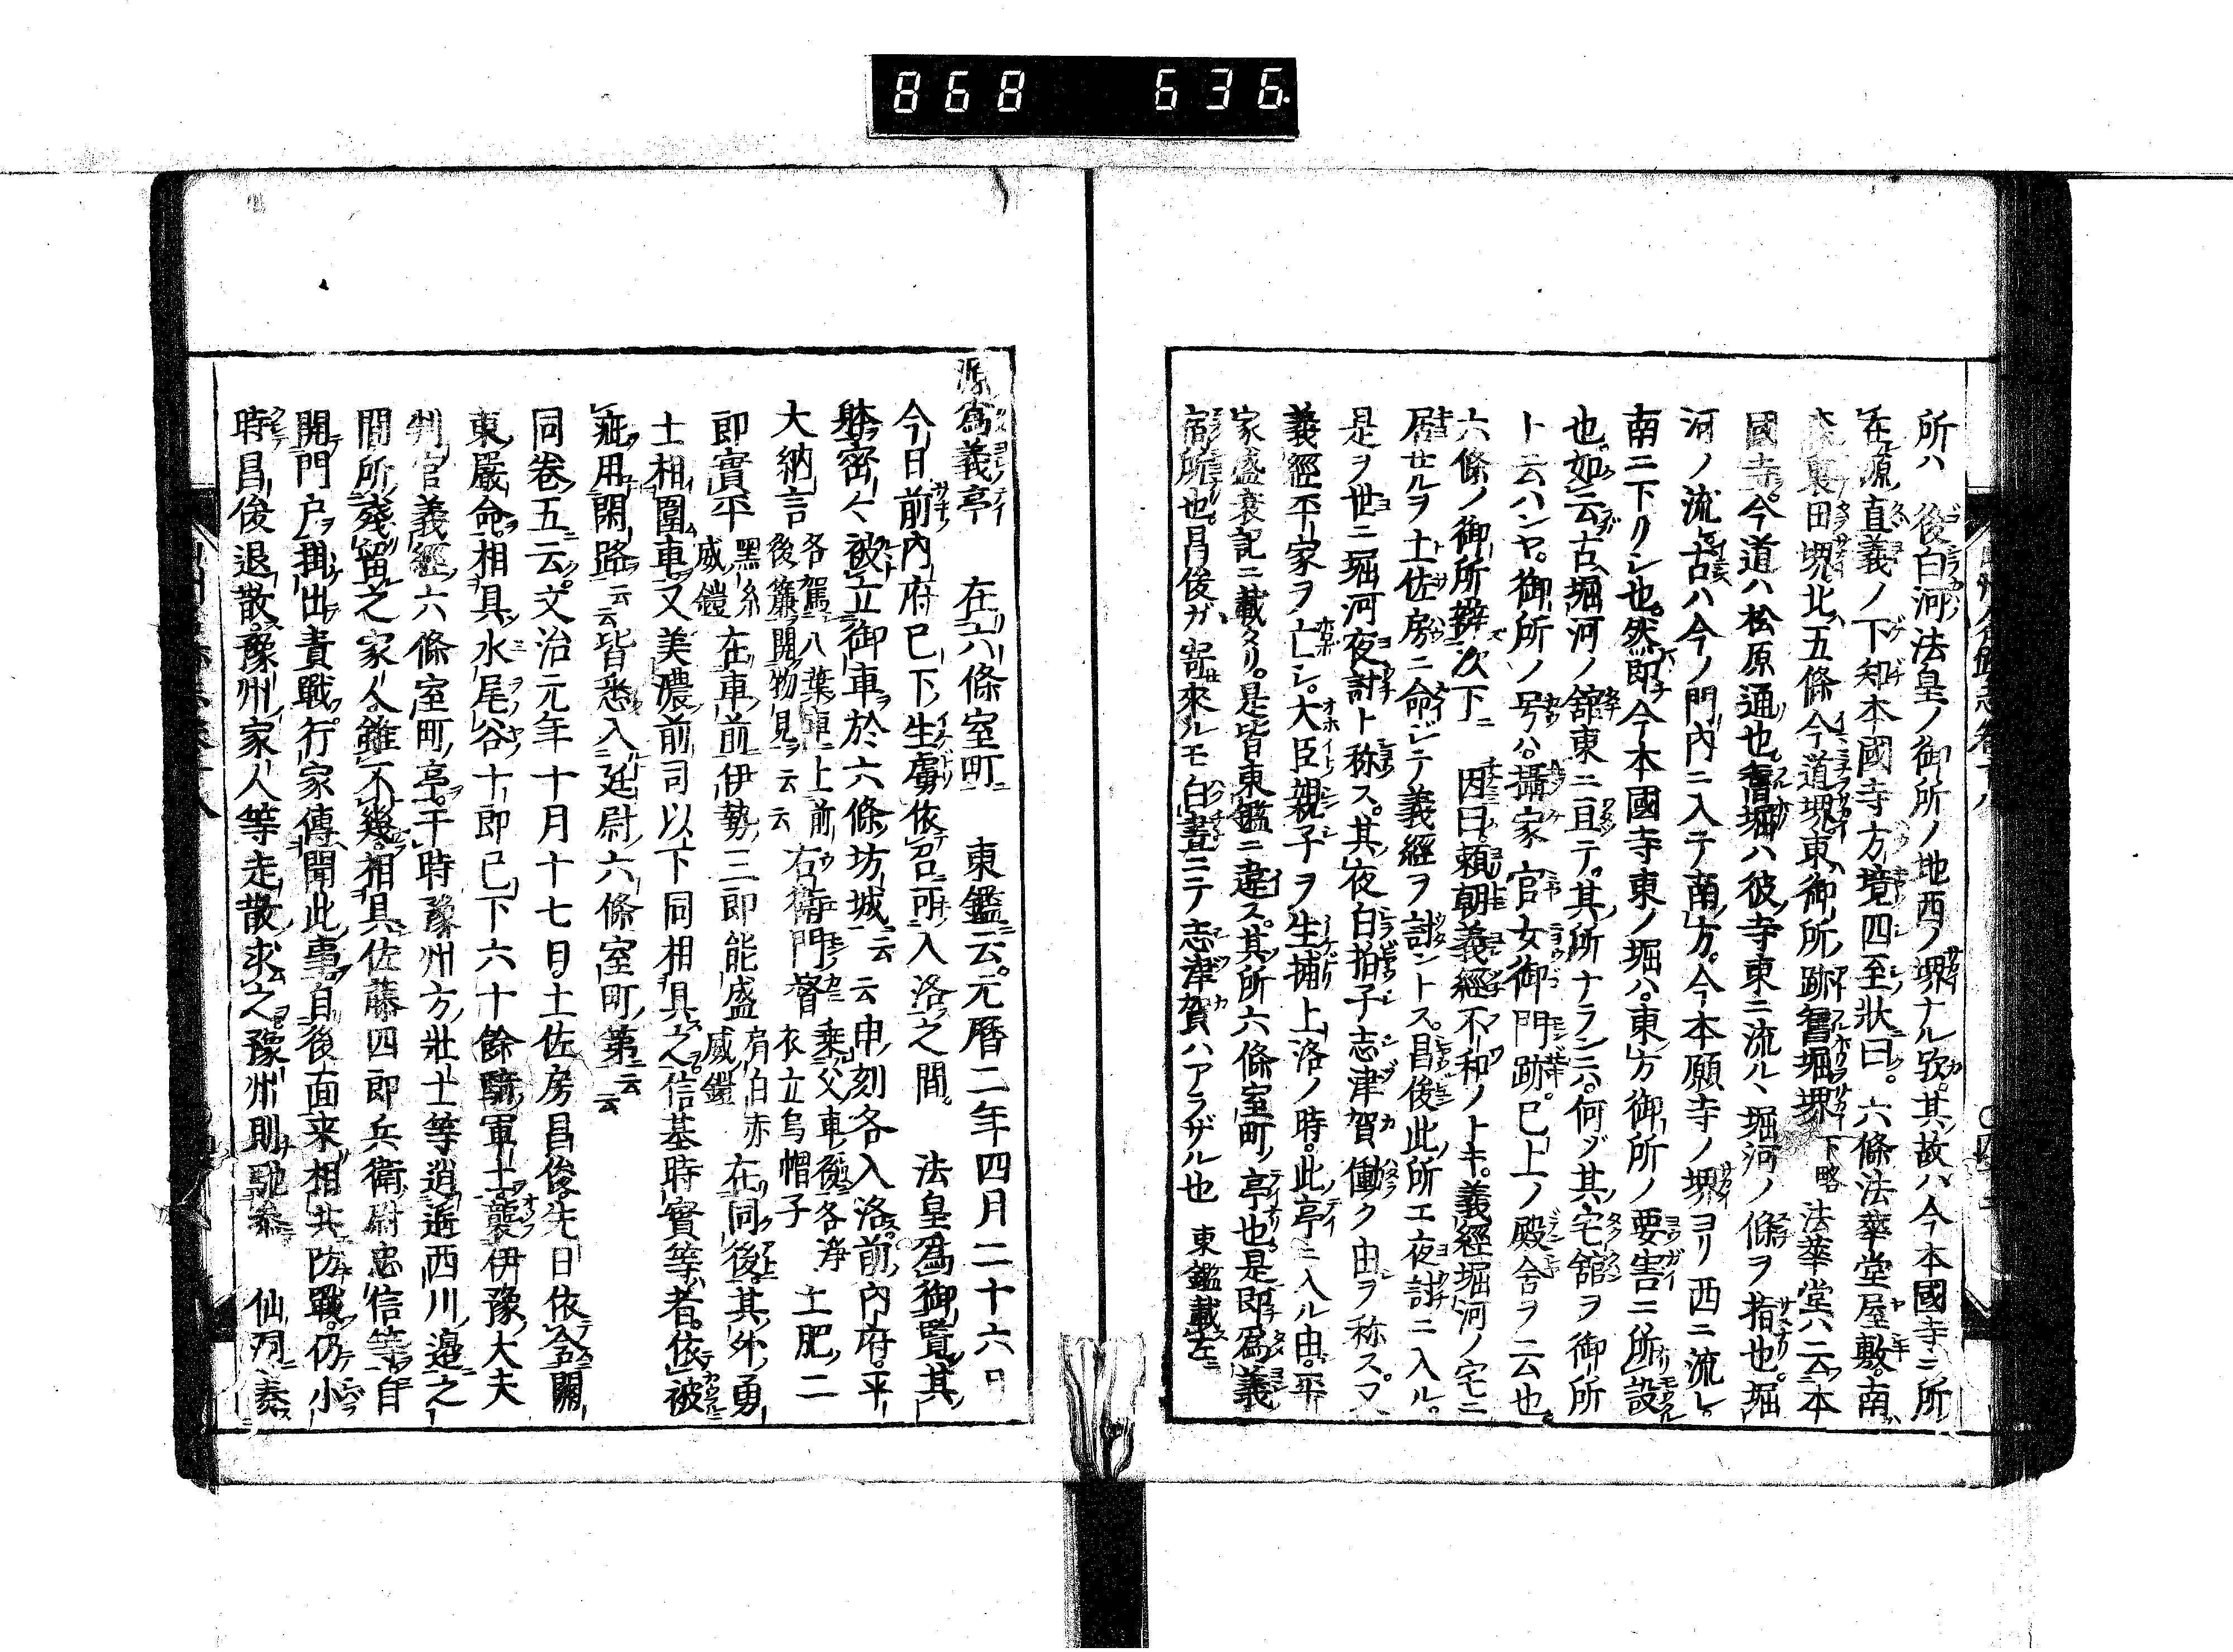 868 636
所ハ 後白河法皇ノ御所ノ地西ノ堺ナル歟。其故ハ今本國寺ニ所
在源直義ノ下知本國寺方境四至狀曰。六條法華堂屋敷。南ハ
裏田堺。北ハ五條今道堺。東ハ御所ノ跡舊堀堺 下略 法華堂六ニ云本
國寺。今道ハ松原通也。舊堀ハ彼寺東ニ流ル、堀河ノ條ヲ指也。堀
河ノ流。古ハ今ノ門内ニ入テ南方。今本願寺ノ堺ヨリ西ニ流レ。
南ニ下クレ也。然即今本國寺東ノ堀ハ。東方御所ノ要害ニ所設
也。如云古堀河ノ舘東ニ亘テ。其所ナランハ。何ゾ其宅舘ヲ御所
ト云ハンヤ。御所ノ号ハ。攝家官女御門跡。已上ノ殿舍ヲ云也。
六條ノ御所辨次下ニ 因曰。頼朝義經不和ノトキ。義經堀河ノ宅ニ
居セルヲ土佐房ニ命ジテ義經ヲ討ントス。昌俊此所エ夜討ニ入ル。
是ヲ世ニ堀河夜討ト称ス。其夜白拍子志津賀働ク由ヲ称ス。又
義經平家ヲ亡シ。大臣親子ヲ生捕上洛ノ時。此亭ニ入ル由。平
家盛衰記ニ載タリ。是皆東鑑ニ違ス。其所六條室町ノ亭也。是即為義
宿所也。昌俊ガ寄來ルモ白晝ニテ志津賀ハアラザル也 東鑑載左ニ
源為義亭 在六條室町ニ 東鑑云。元曆二年四月二十六日
今日前內府已下生虜依召可入洛之間。 法皇為御覽其
躰密々被立御車於六條坊城云云申刻各入洛。前內府。平
大納言 各駕八葉車上前後簾開物見云云 右衛門督 乗父車後各淨衣立烏帽子 土肥二
即實平 黑糸威鎧 在車前伊勢三即能盛 肩白赤威鎧 在同後。其外勇
士相圍車又美濃前司以下同相具之信基時實等者。依被
疵用閑路云云皆悉入廷尉六條室町第云云
同卷五云。文治元年十月十七日土佐房昌俊先日依含關
東嚴命相具水尾谷十即已下六十餘騎軍士襲伊豫大夫
判官義經六條室町亭。于時豫州方壯士等逍遥西川邊之
間所殘留之家人雖不幾。相具佐藤四即兵衛尉忠信等自
開門戸掛出責戰。行家傳聞此事自後面来相共防戰。仍小
時昌俊退散豫州家人等走散求之豫州則馳參 仙洞奏